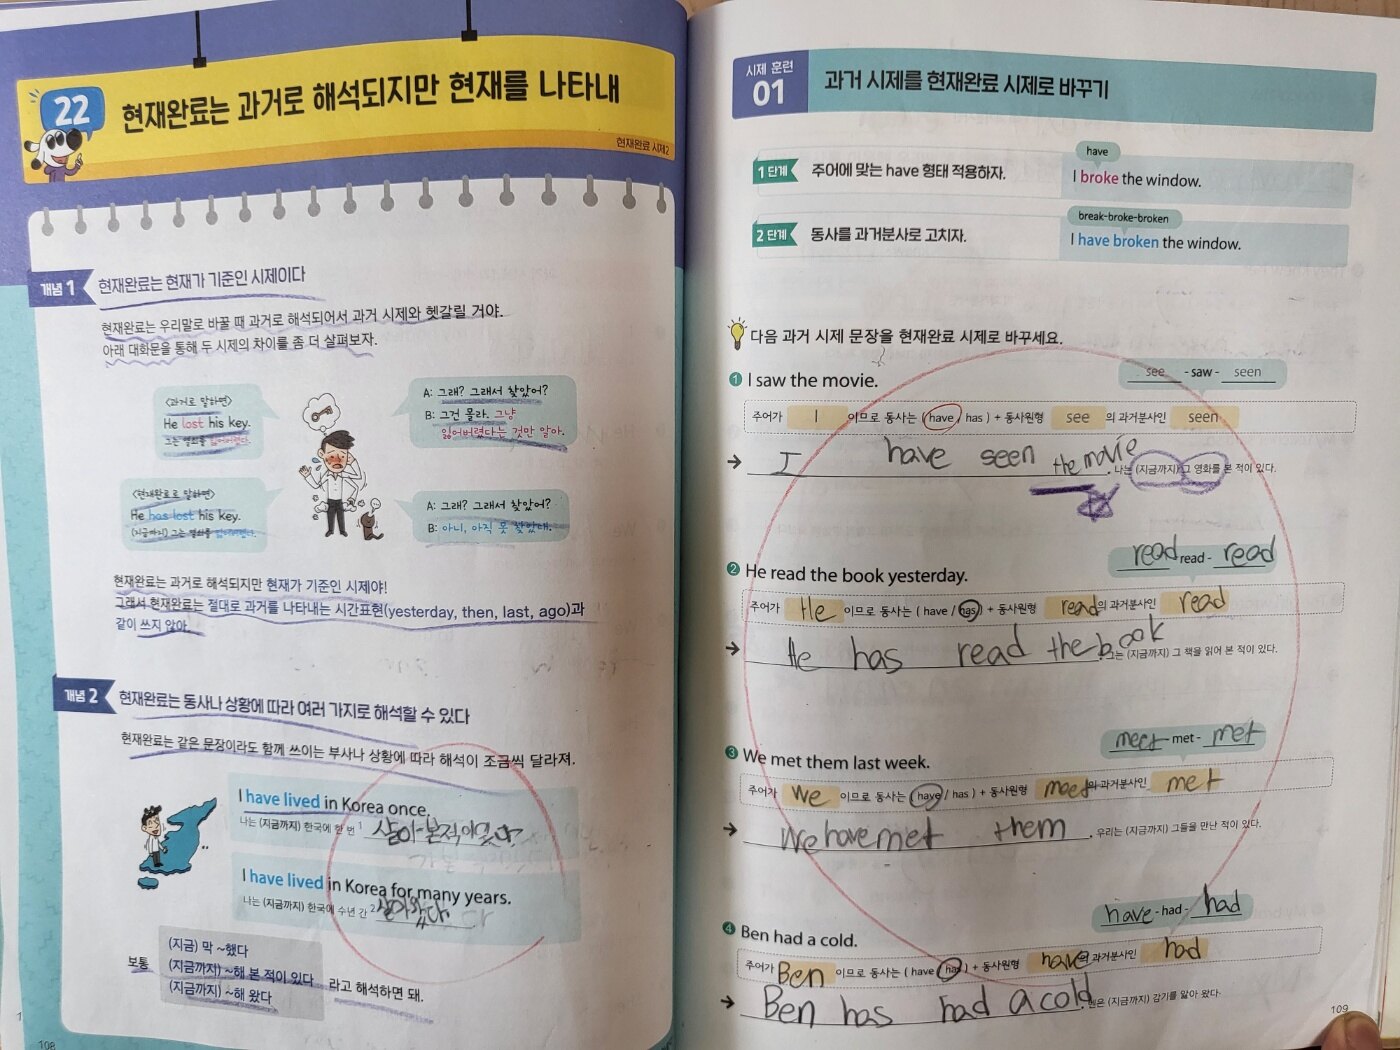 22
현재완료는 과거로 해석되지만 현재를 나타내
현재완료 시제2
개념 1 현재완료는 현재가 기준인 시제이다
현재완료는 우리말로 바꿀 때 과거로 해석되어서 과거 시제와 헷갈릴 거야.
아래 대화문을 통해 두 시제의 차이를 좀 더 살펴보자.
<과거로 말하면>
He lost his key.
그는 열쇠를 잃어버렸다.
A: 그래? 그래서 찾았어?
B: 그건 몰라. 그냥
잃어버렸다는 것만 알아.
<현재완료로 말하면>
He has lost his key.
(지금까지) 그는 열쇠를 잃어버렸다.
A: 그래? 그래서 찾았어?
B: 아니, 아직 못 찾았대.
현재완료는 과거로 해석되지만 현재가 기준인 시제야!
그래서 현재완료는 절대로 과거를 나타내는 시간표현(yesterday, then, last, ago)과
같이 쓰지 않아
개념 2 현재완료는 동사나 상황에 따라 여러 가지로 해석할 수 있다
현재완료는 같은 문장이라도 함께 쓰이는 부사나 상황에 따라 해석이 조금씩 달라져.
I have lived in Korea once.
나는 (지금까지) 한국에 한 번 1 살아본적이있다.
I have lived in Korea for many years.
나는 (지금까지) 한국에 수년 간 2 살아왔다.
(지금) 막 ~했다
보통 (지금까지) ~해 본 적이 있다 라고 해석하면 돼.
(지금까지) ~해 왔다
108
시제 훈련
01
과거 시제를 현재완료 시제로 바꾸기
1 단계 주어에 맞는 have 형태 적용하자.
have
I broke the window.
2 단계 동사를 과거분사로 고치자.
break-broke-broken
I have broken the window.
다음 과거 시제 문장을 현재완료 시제로 바꾸세요.
1 I saw the movie.
see - saw - seen
주어가 I 이므로 동사는 ( have / has ) + 동사원형 see 의 과거분사인 seen
→ I have seen the movie . 나는 (지금까지) 그 영화를 본 적이 있다.
2 He read the book yesterday.
read read - read
주어가 He 이므로 동사는 ( have / has ) + 동사원형 read 의 과거분사인 read
→ He has read the book . 그는 (지금까지) 그 책을 읽어 본 적이 있다.
3 We met them last week.
meet - met - met
주어가 we 이므로 동사는 ( have / has ) + 동사원형 meet 의 과거분사인 met
→ We have met them . 우리는 (지금까지) 그들을 만난 적이 있다.
4 Ben had a cold.
have - had - had
주어가 Ben 이므로 동사는 ( have / has ) + 동사원형 have 의 과거분사인 had
→ Ben has had a cold . 벤은 (지금까지) 감기를 앓아 왔다.
109